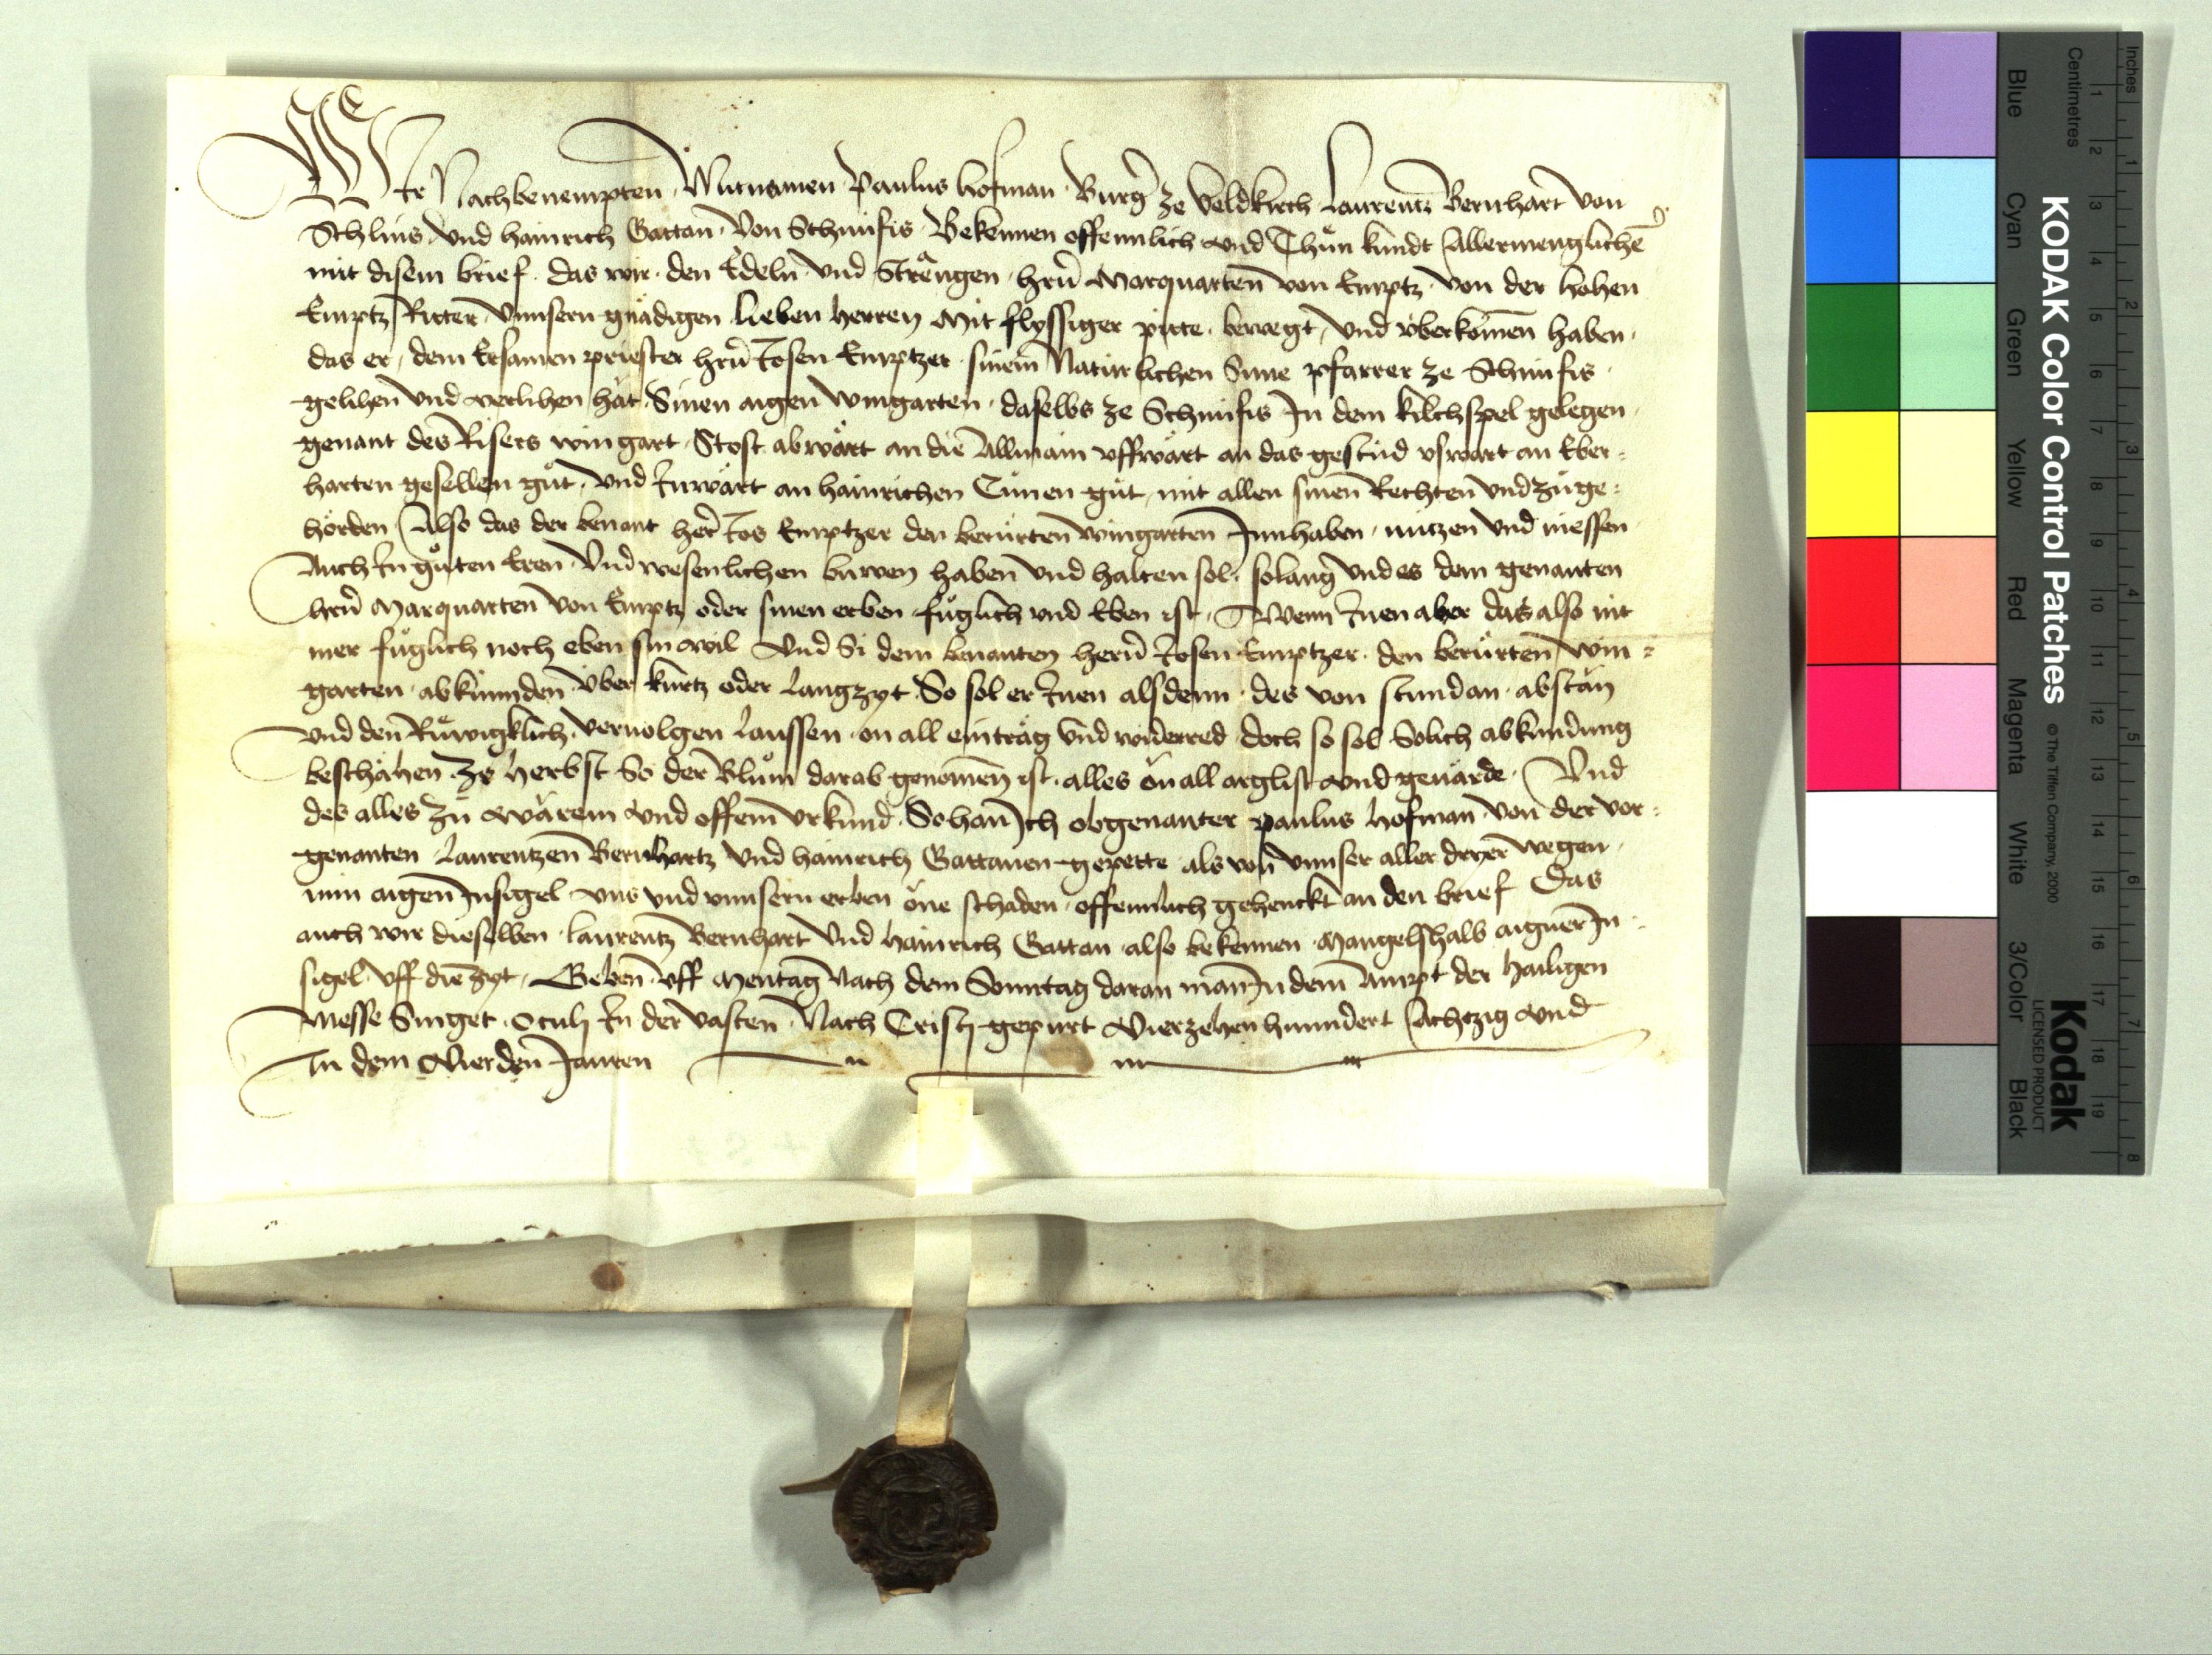 Wir Nachbenempten, Mutnamen Paulus hofman Burg̃ ze veldkirch Laurentz Bernhart von
Schlins, vnd hainrich Gattan von Schnüfis Bekennen offennlich vnd Thůn kundt Allermenglichē
mit disem brief. das wir den Edeln vnd Strengen hrñ Marquarten von Emptz von der hohen
Emptz Ritter, vnnsern gnädigen lieben herren Mit flyssiger pitte, bewegt, vnd v̈berkomen haben.
das er, dem Ersamen priester hrñ Josen Emptzer sinem Natürlichen Sune pfarrer ze Schnüfis
gelihen vnd verlihen hat Sinen aigen wingarten, daselbs ze Schnüfis In dem kilchspel gelegen
genant des Risers wingart. Stost abwärt an die Allmain vffwärt an das gestüd vswärt an Eber=
harten gesellen gůt, vnd Inwärt an hainrichen Cůnen gůt, mit allen sinen Rechten vnd zůge=
hörden Also das der benant her Jos Emptzer den berürten wingarten Innhaben, nützen vnd niessen
Auch In gůten Eren vnd wesenlichen buwen haben vnd halten sol. solang vnd es dem genanten
hrñ Marquarten von Emptz oder sinen erben fůglich vnd Eben ist. Wenn Inen aber das also nit
mer fůglich noch eben sin wil Vnd Si dem benanten herñ Josen Emptzer. den berürten win=
garten abkünnden über kurtz oder langzyt So sol er Inen alsdenn des von stundan abstän
vnd den Rüwigklich veruolgen laussen on all einträg vnd widerred doch so sol Solich abkündung
beschähen ze herbst so der Blům darab genomen ist. alles ön all arglist vnd geuärde. Vnd
des alles zů wärem vnd offem vrkund. So han Ich obgenanter paulus hofman von der vor=
genanten Laurentzen Bernhartz vnd hainrich Gattanen gepette als von vnnser aller dryer wegen
min aigen Insigel vns vnd vnnsern erben öne schaden offennlich gehenckt an den brief Das
auch wir dieselben laurentz Bernhart vnd hainrich Gattan also bekennen Mangelshalb aigner In
sigel vff die zyt. Geben vff Mentag nach dem Sonntag daran man In dem Ampt der hailigen
Messe Singet Oculi In der vasten Nach Cristi gepurt Vierzehenhunndert Achtzig vnd
In dem Vierden Jauren
KODAK Color Control Patches
© The Tiffen Company, 2000
Kodak
LICENSED PRODUCT
Inches
Centimetres
Blue Cyan Green Yellow Red Magenta White 3/Color Black
1 2 3 4 5 6 7 8 9 10 11 12 13 14 15 16 17 18 19
1 2 3 4 5 6 7 8